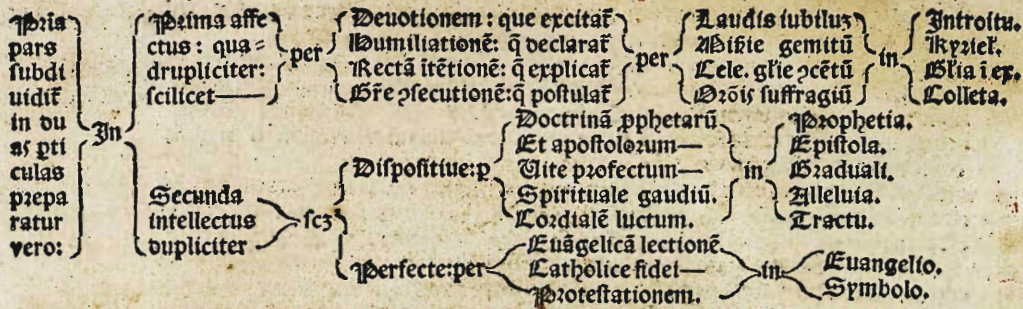 Pria
pars
subdi
uidit̃
in du
as ꝑti
culas
prepa
ratur
vero:
In
Prima affe
ctus : qua=
drupliciter:
scilicet—
per
Deuotionem : que excitat̃
Humiliationẽ: q̃ declarat̃
Rectã ĩtẽtionẽ: q̃ explicat̃
Gr̃e ꝯsecutionẽ: q̃ postulat̃
per
Laudis iubiluꝫ
Misẽie gemitũ
Cele. gl̃ie ꝯcẽtũ
Or̃õis suffragiũ
in
Introitu.
Kyriel̃.
Gl̃ia ĩ ex.
Colleta.
Secunda
intellectus
dupliciter
scꝫ
Dispositiue:ꝑ
Doctrinã ꝓphetarũ
Et apostolorum—
Uite profectum—
Spirituale gaudiũ.
Cordialẽ luctum.
in
Prophetia.
Epistola.
Graduali.
Alleluia.
Tractu.
Perfecte:per
Euãgelicã lectionẽ
Catholice fidei—
Protestationem.
in
Euangelio.
Symbolo.